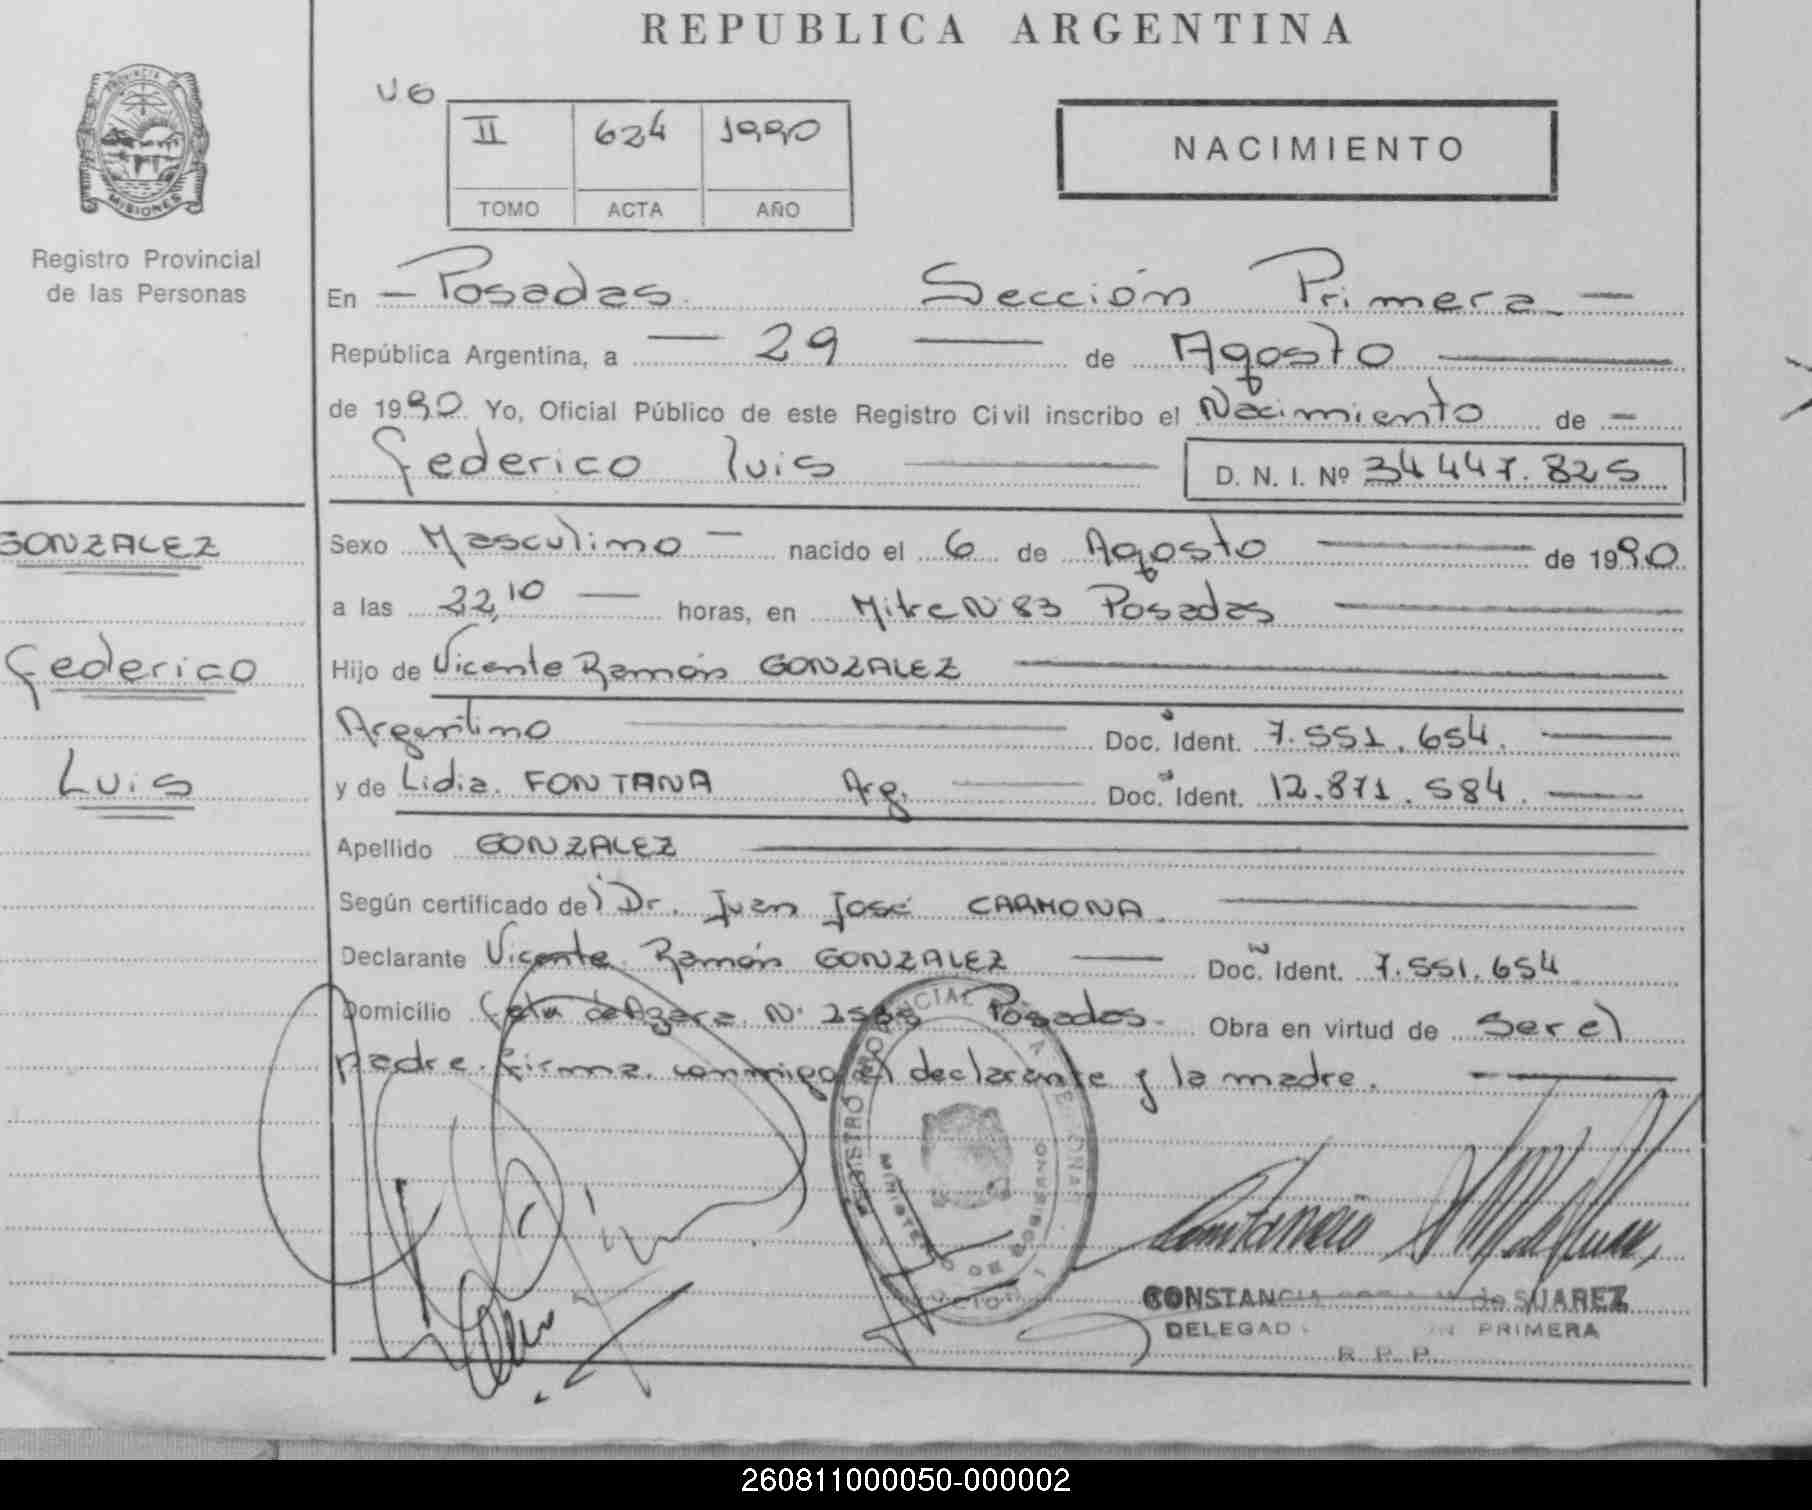 REPUBLICA ARGENTINA
UG
II 624 1990
TOMO ACTA AÑO
NACIMIENTO
PROVINCIA DE
MISIONES
Registro Provincial
de las Personas
En — Posadas. Sección Primera —
República Argentina, a — 29 — de Agosto —
de 1990. Yo, Oficial Público de este Registro Civil inscribo el Nacimiento de —
Federico luis — D. N. I. Nº 34 447.825
GONZALEZ
Federico
Luis
Sexo Masculino — nacido el 6 de Agosto — de 1990
a las 22,10 — horas, en Mitre Nº 83 Posadas —
Hijo de Vicente Ramón GONZALEZ —
Argentino — Doc. Ident. 7.551.654. —
y de Lidia. FONTANA Arg. — Doc. Ident. 12.871.584. —
Apellido GONZALEZ —
Según certificado de Dr. Juan José CARMONA. —
Declarante Vicente Ramón GONZALEZ — Doc. Ident. 7.551.654
Domicilio de Azara Nº Posadas. Obra en virtud de ser el
padre. firma. conmigo el declarante y la madre. —
REGISTRO PROVINCIAL
MINISTERIO DE GOBIERNO
CONSTANCIA de SUAREZ
PRIMERA
R. P. P.
260811000050-000002